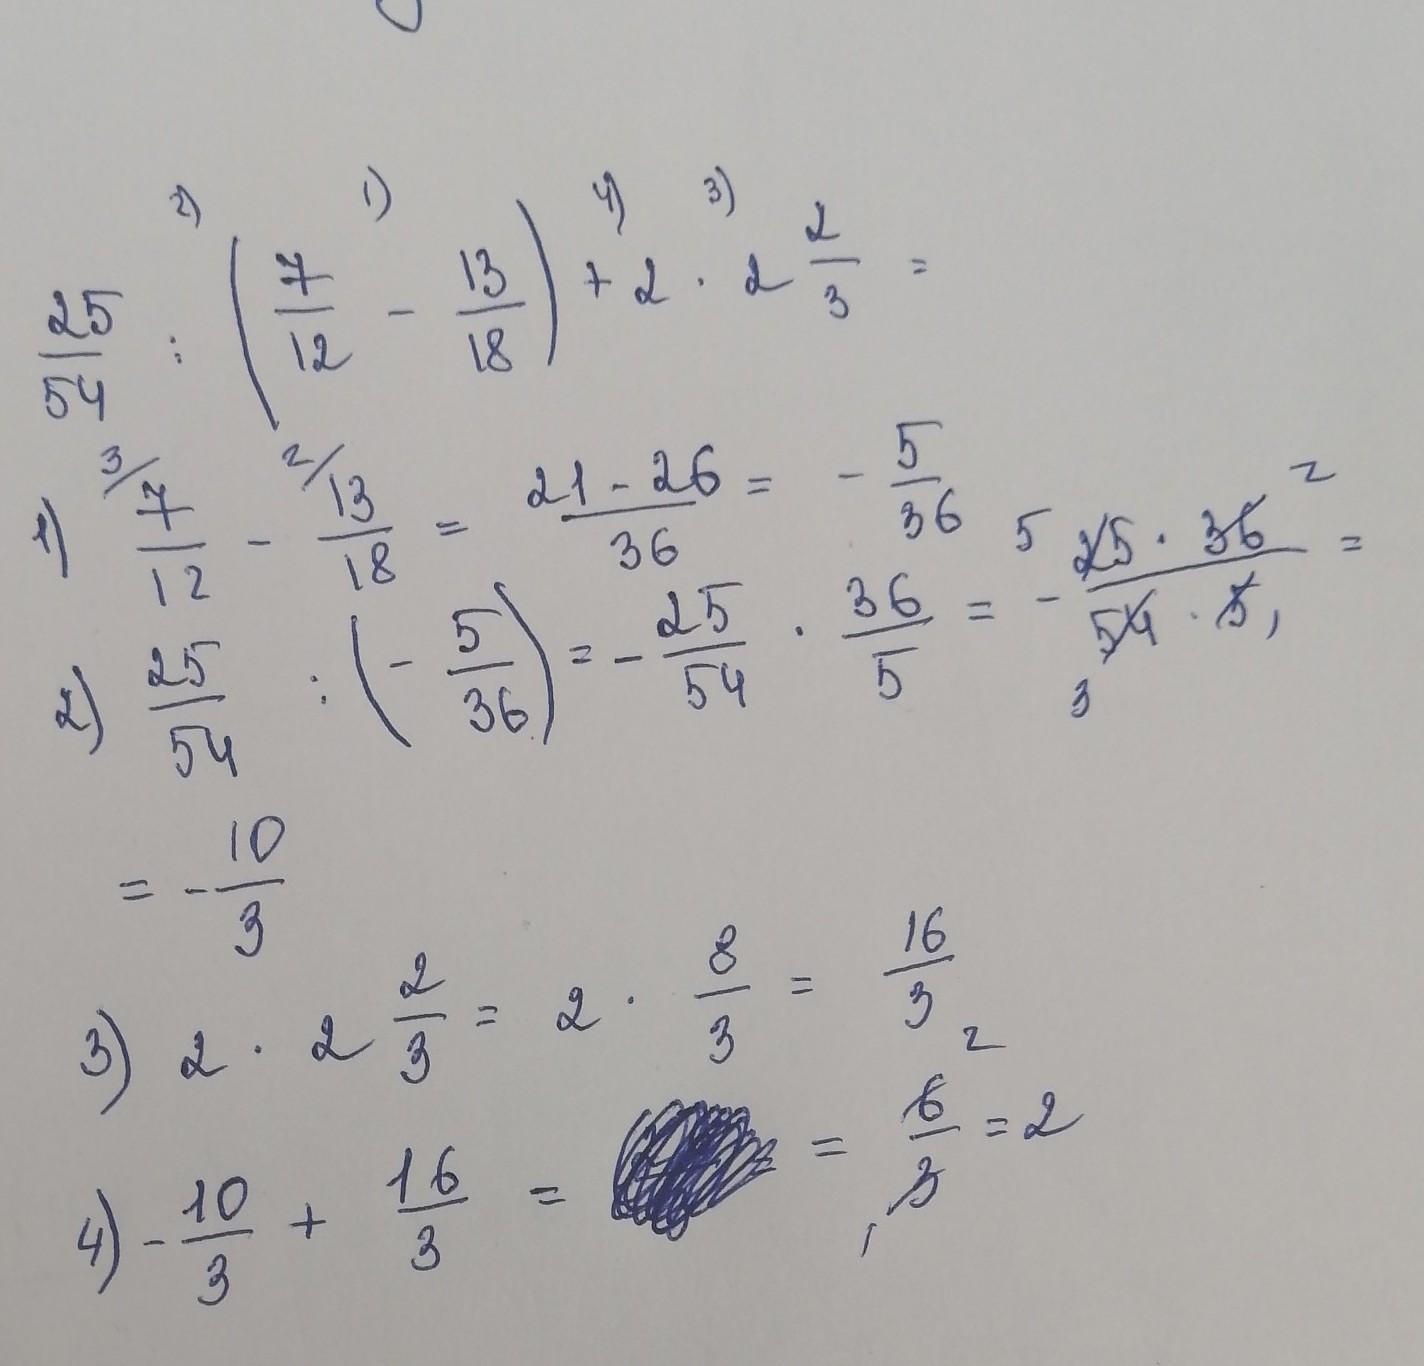 2) 1) 4) 3)
25/54 : (7/12 - 13/18) + 2 · 2 2/3 =
1) 3/ 7/12 - 2/ 13/18 = (21 - 26)/36 = - 5/36
2) 25/54 : (- 5/36) = - 25/54 · 36/5 = - (5 25 · 36 2)/(3 54 · 5 1) =
= - 10/3
3) 2 · 2 2/3 = 2 · 8/3 = 16/3
4) - 10/3 + 16/3 = = 6 2/3 1 = 2